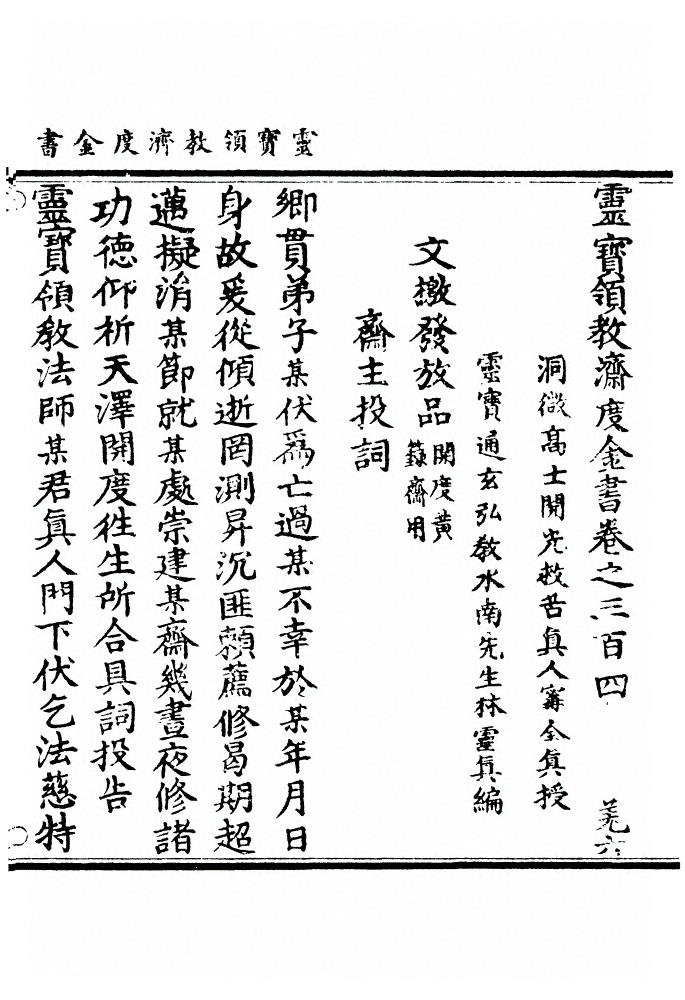 靈寶領教濟度金書
靈寶領教濟度金書卷之三百四
羌六
洞微高士開光救苦眞人甯全眞授
靈寶通玄弘敎水南先生林靈眞編
文檄發放品
開度黃
籙齋用
齋主投詞
鄉貫弟子某伏爲亡過某不幸於某年月日
身故爰從傾逝罔測昇沉匪賴薦修曷期超
邁擬涓某節就某處崇建某齋幾晝夜修諸
功德仰祈天澤開度徃生所合具詞投告
靈寶領敎法師某君眞人門下伏乞法慈特